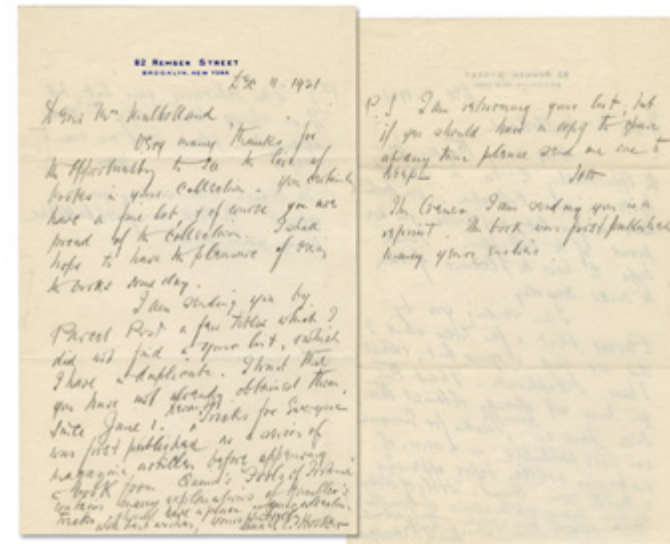 82 REMSEN STREET
BROOKLYN, NEW YORK
Dec 11 1921
Dear Mr Mulholland
Very many thanks for
the opportunity to see the list of
books in your collection. You certainly
have a fine list, & of course you are
proud of the collection. I shall
hope to have the pleasure of seeing
the books some day.
I am sending you by
Parcel Post a few titles which I
did not find in your list, & which
I have in duplicate. I trust that
you have not already obtained them
since June 1. "Tricks for Everyone"
was first published as a series of
magazine articles before appearing
book form
contains many explanations of
with best wishes, yours
P.S. I am returning your list, but
if you should have a copy to spare
at any time please send me one to
keep.
I am sending you is a
reprint. The book was first published
many years earlier.